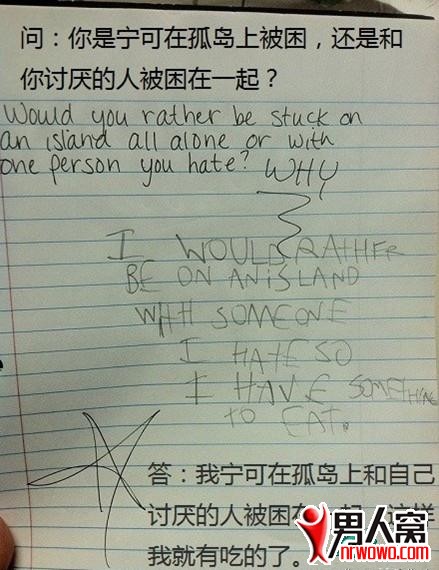 问：你是宁可在孤岛上被困，还是和
你讨厌的人被困在一起？
Would you rather be stuck on
an island all alone or with
one person you hate? WHY
I WOULD RATHER
BE ON AN ISLAND
WITH SOMEONE
I HATE SO
I HAVE SOMETHING
TO EAT.
答：我宁可在孤岛上和自己
讨厌的人被困在
我就有吃的了。
男人窝
nrwowo.com